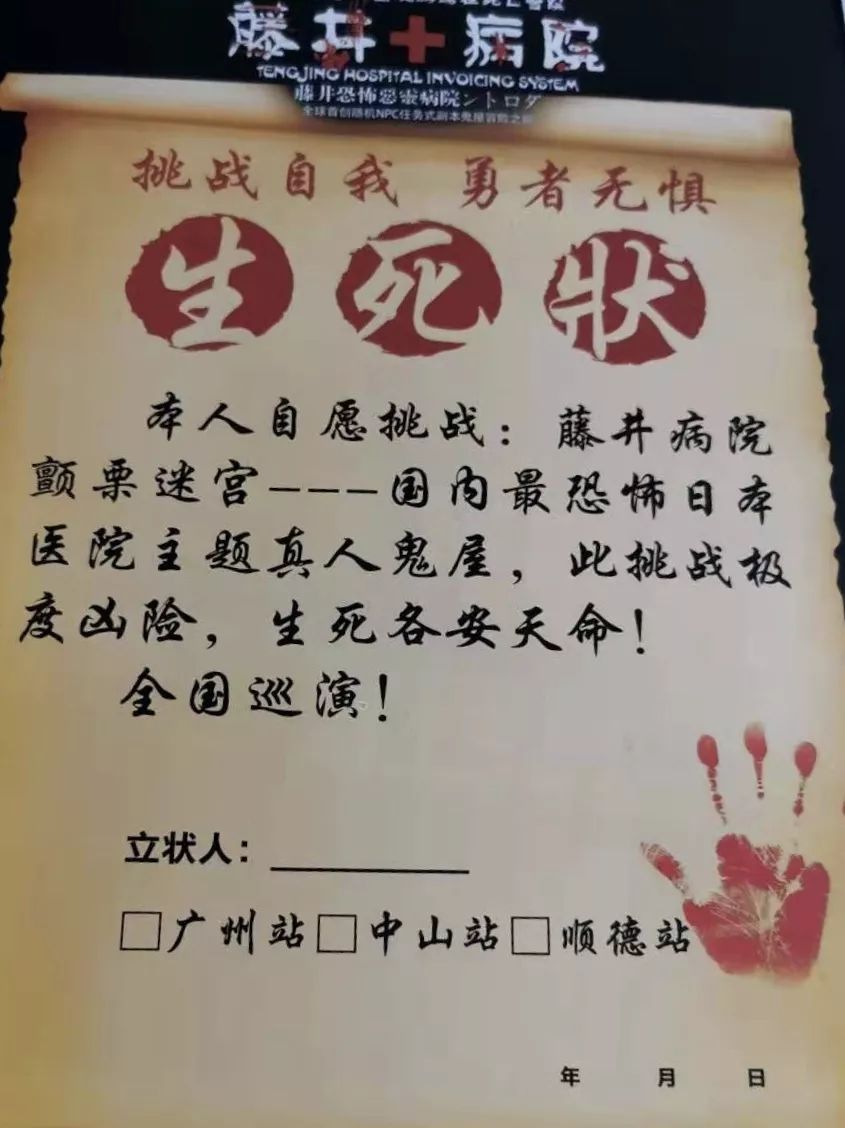 藤井病院
TENGJING HOSPITAL INVOICING SYSTEM
藤井恐怖恶靈病院ントロダ
全球首创随机NPC任务式剧本鬼屋冒险之
挑战自我 勇者无惧
生死狀
本人自愿挑战：藤井病院
颤栗迷宫---国内最恐怖日本
医院主题真人鬼屋，此挑战极
度凶险，生死各安天命！
全国巡演！
立状人：
□广州站□中山站□顺德站
年 月 日